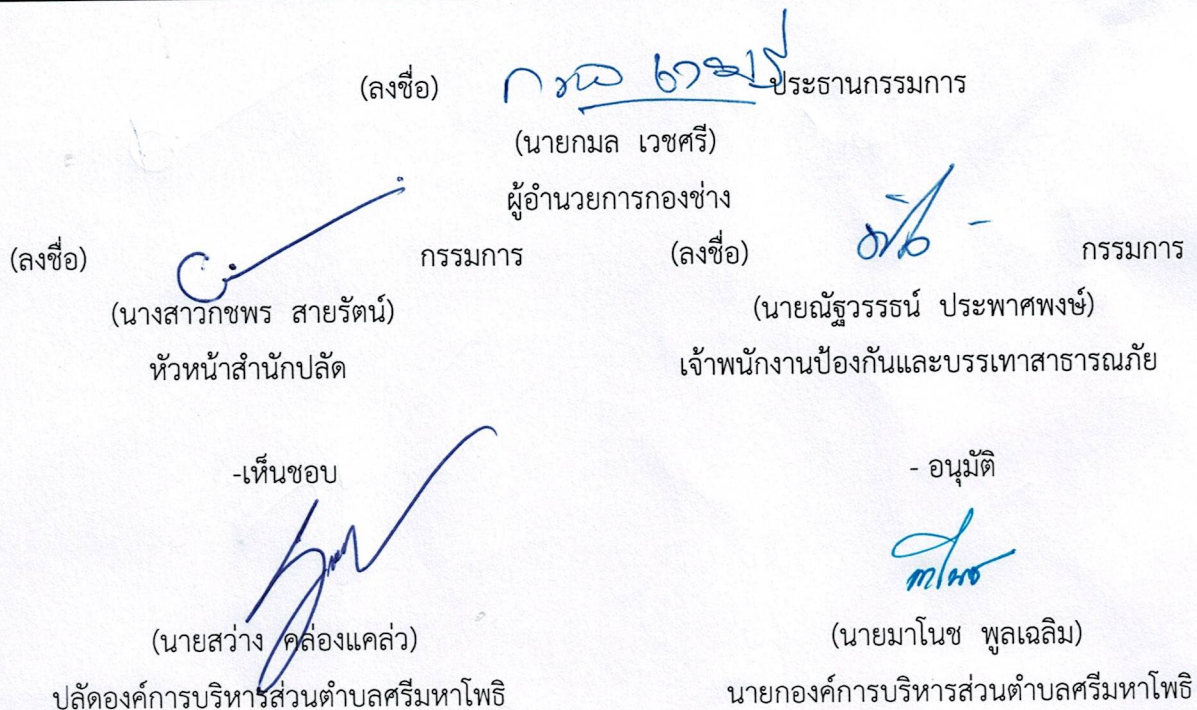 (ลงชื่อ) กมล เวชศรี ประธานกรรมการ
(นายกมล เวชศรี)
ผู้อำนวยการกองช่าง
(ลงชื่อ) กรรมการ
(นางสาวกชพร สายรัตน์)
หัวหน้าสำนักปลัด
(ลงชื่อ) กรรมการ
(นายณัฐวรรธน์ ประพาศพงษ์)
เจ้าพนักงานป้องกันและบรรเทาสาธารณภัย
-เห็นชอบ
(นายสว่าง คล่องแคล่ว)
ปลัดองค์การบริหารส่วนตำบลศรีมหาโพธิ
- อนุมัติ
(นายมาโนช พูลเฉลิม)
นายกองค์การบริหารส่วนตำบลศรีมหาโพธิ